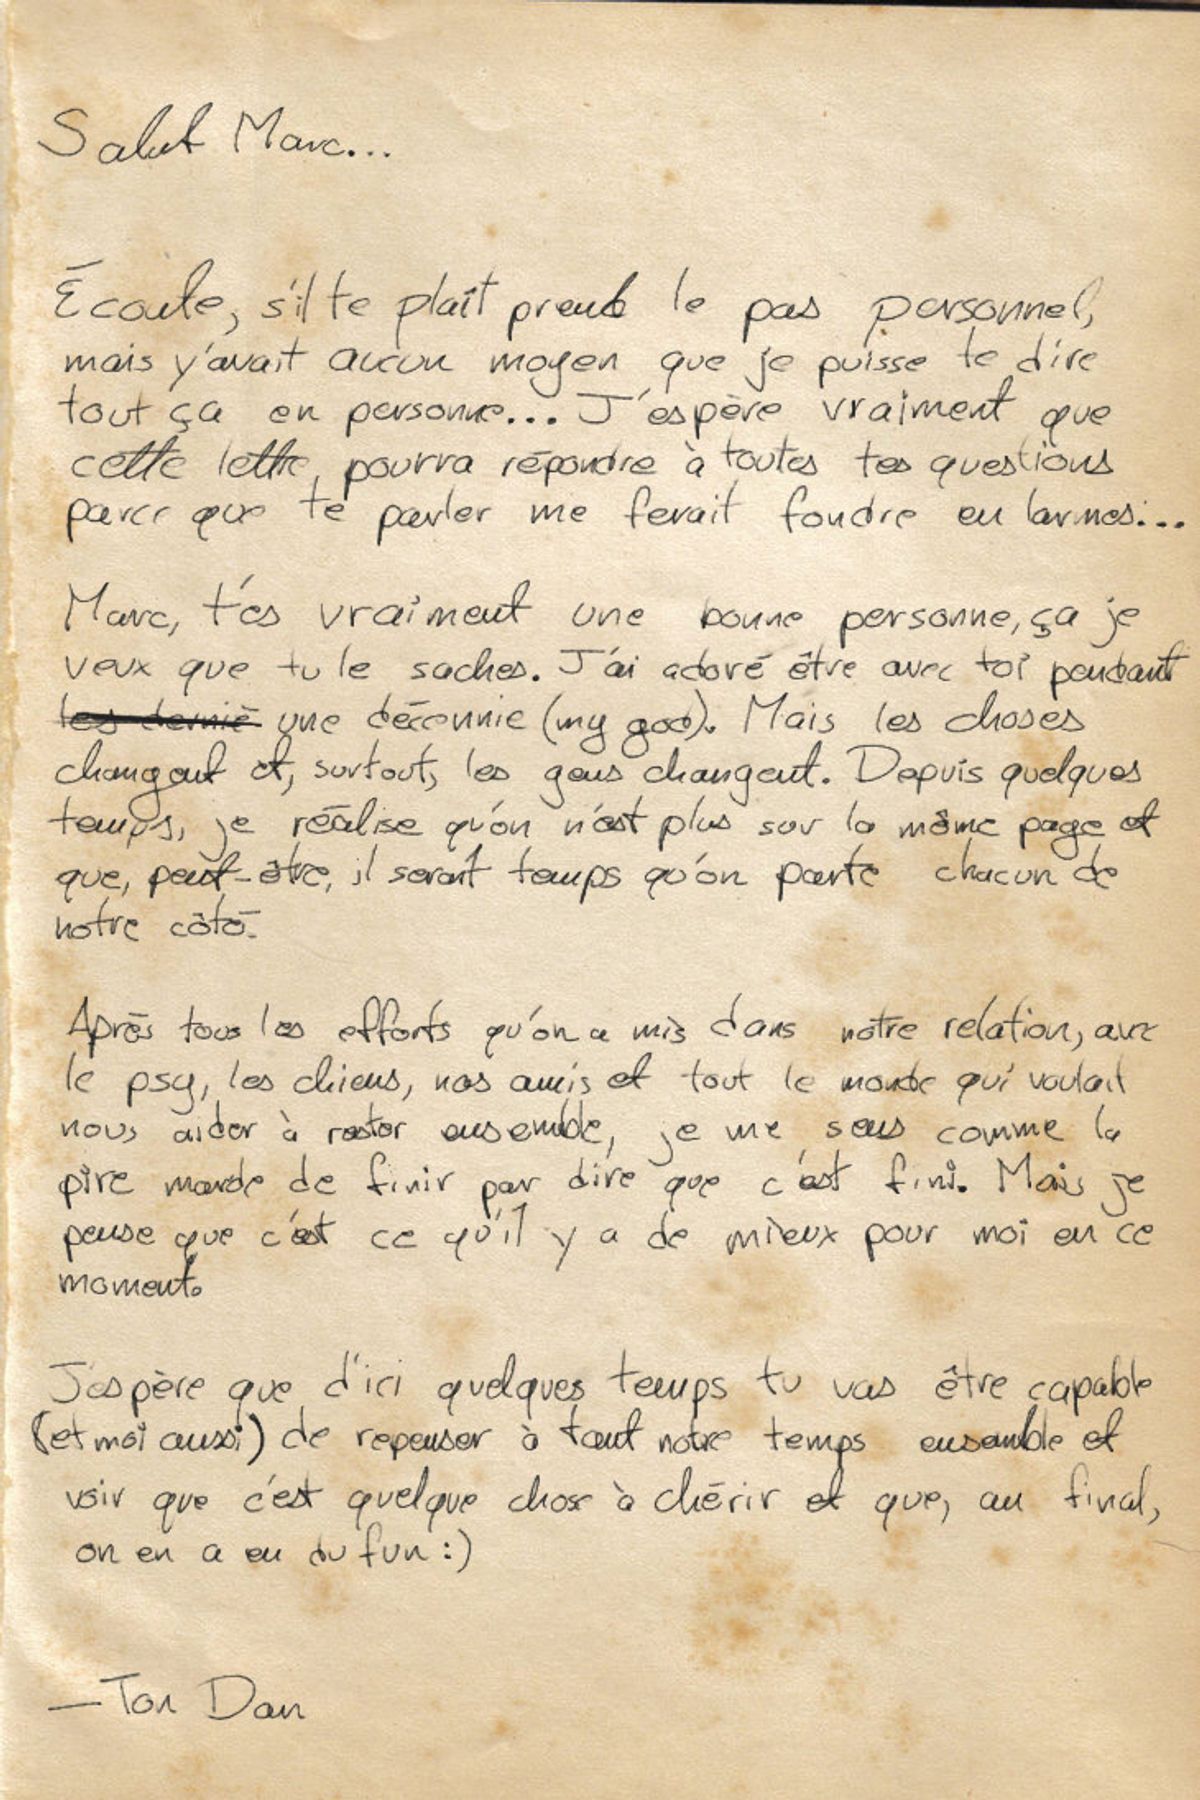 Salut Marc...
Écoute, s'il te plaît prends le pas personnel,
mais y'avait aucun moyen que je puisse te dire
tout ça en personne... J'espère vraiment que
cette lettre pourra répondre à toutes tes questions
parce que te parler me ferait fondre en larmes...
Marc, t'es vraiment une bonne personne, ça je
veux que tu le saches. J'ai adoré être avec toi pendant
les derniè une décennie (my god). Mais les choses
changent et, surtout, les gens changent. Depuis quelques
temps, je réalise qu'on n'est plus sur la même page et
que, peut-être, il serait temps qu'on parte chacun de
notre côté.
Après tous les efforts qu'on a mis dans notre relation, avec
le psy, les chiens, nos amis et tout le monde qui voulait
nous aider à rester ensemble, je me sens comme la
pire marde de finir par dire que c'est fini. Mais je
pense que c'est ce qu'il y a de mieux pour moi en ce
moment.
J'espère que d'ici quelques temps tu vas être capable
(et moi aussi) de repenser à tout notre temps ensemble et
voir que c'est quelque chose à chérir et que, au final,
on en a eu du fun :)
—Ton Dan